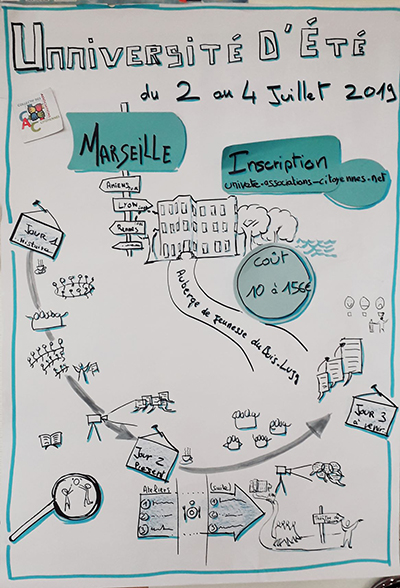 Université d'Été
du 2 au 4 Juillet 2019
CAC
Marseille
Amiens
Lyon
Rennes
Inscription
univate-associations-citoyennes.net
Jour 1
Histoires
Coût
10 à 156€
Auberge de jeunesse du Bois-Luzy
Jour 3
à venir
Jour 2
Présent
Ateliers
(suite)
1
2
3